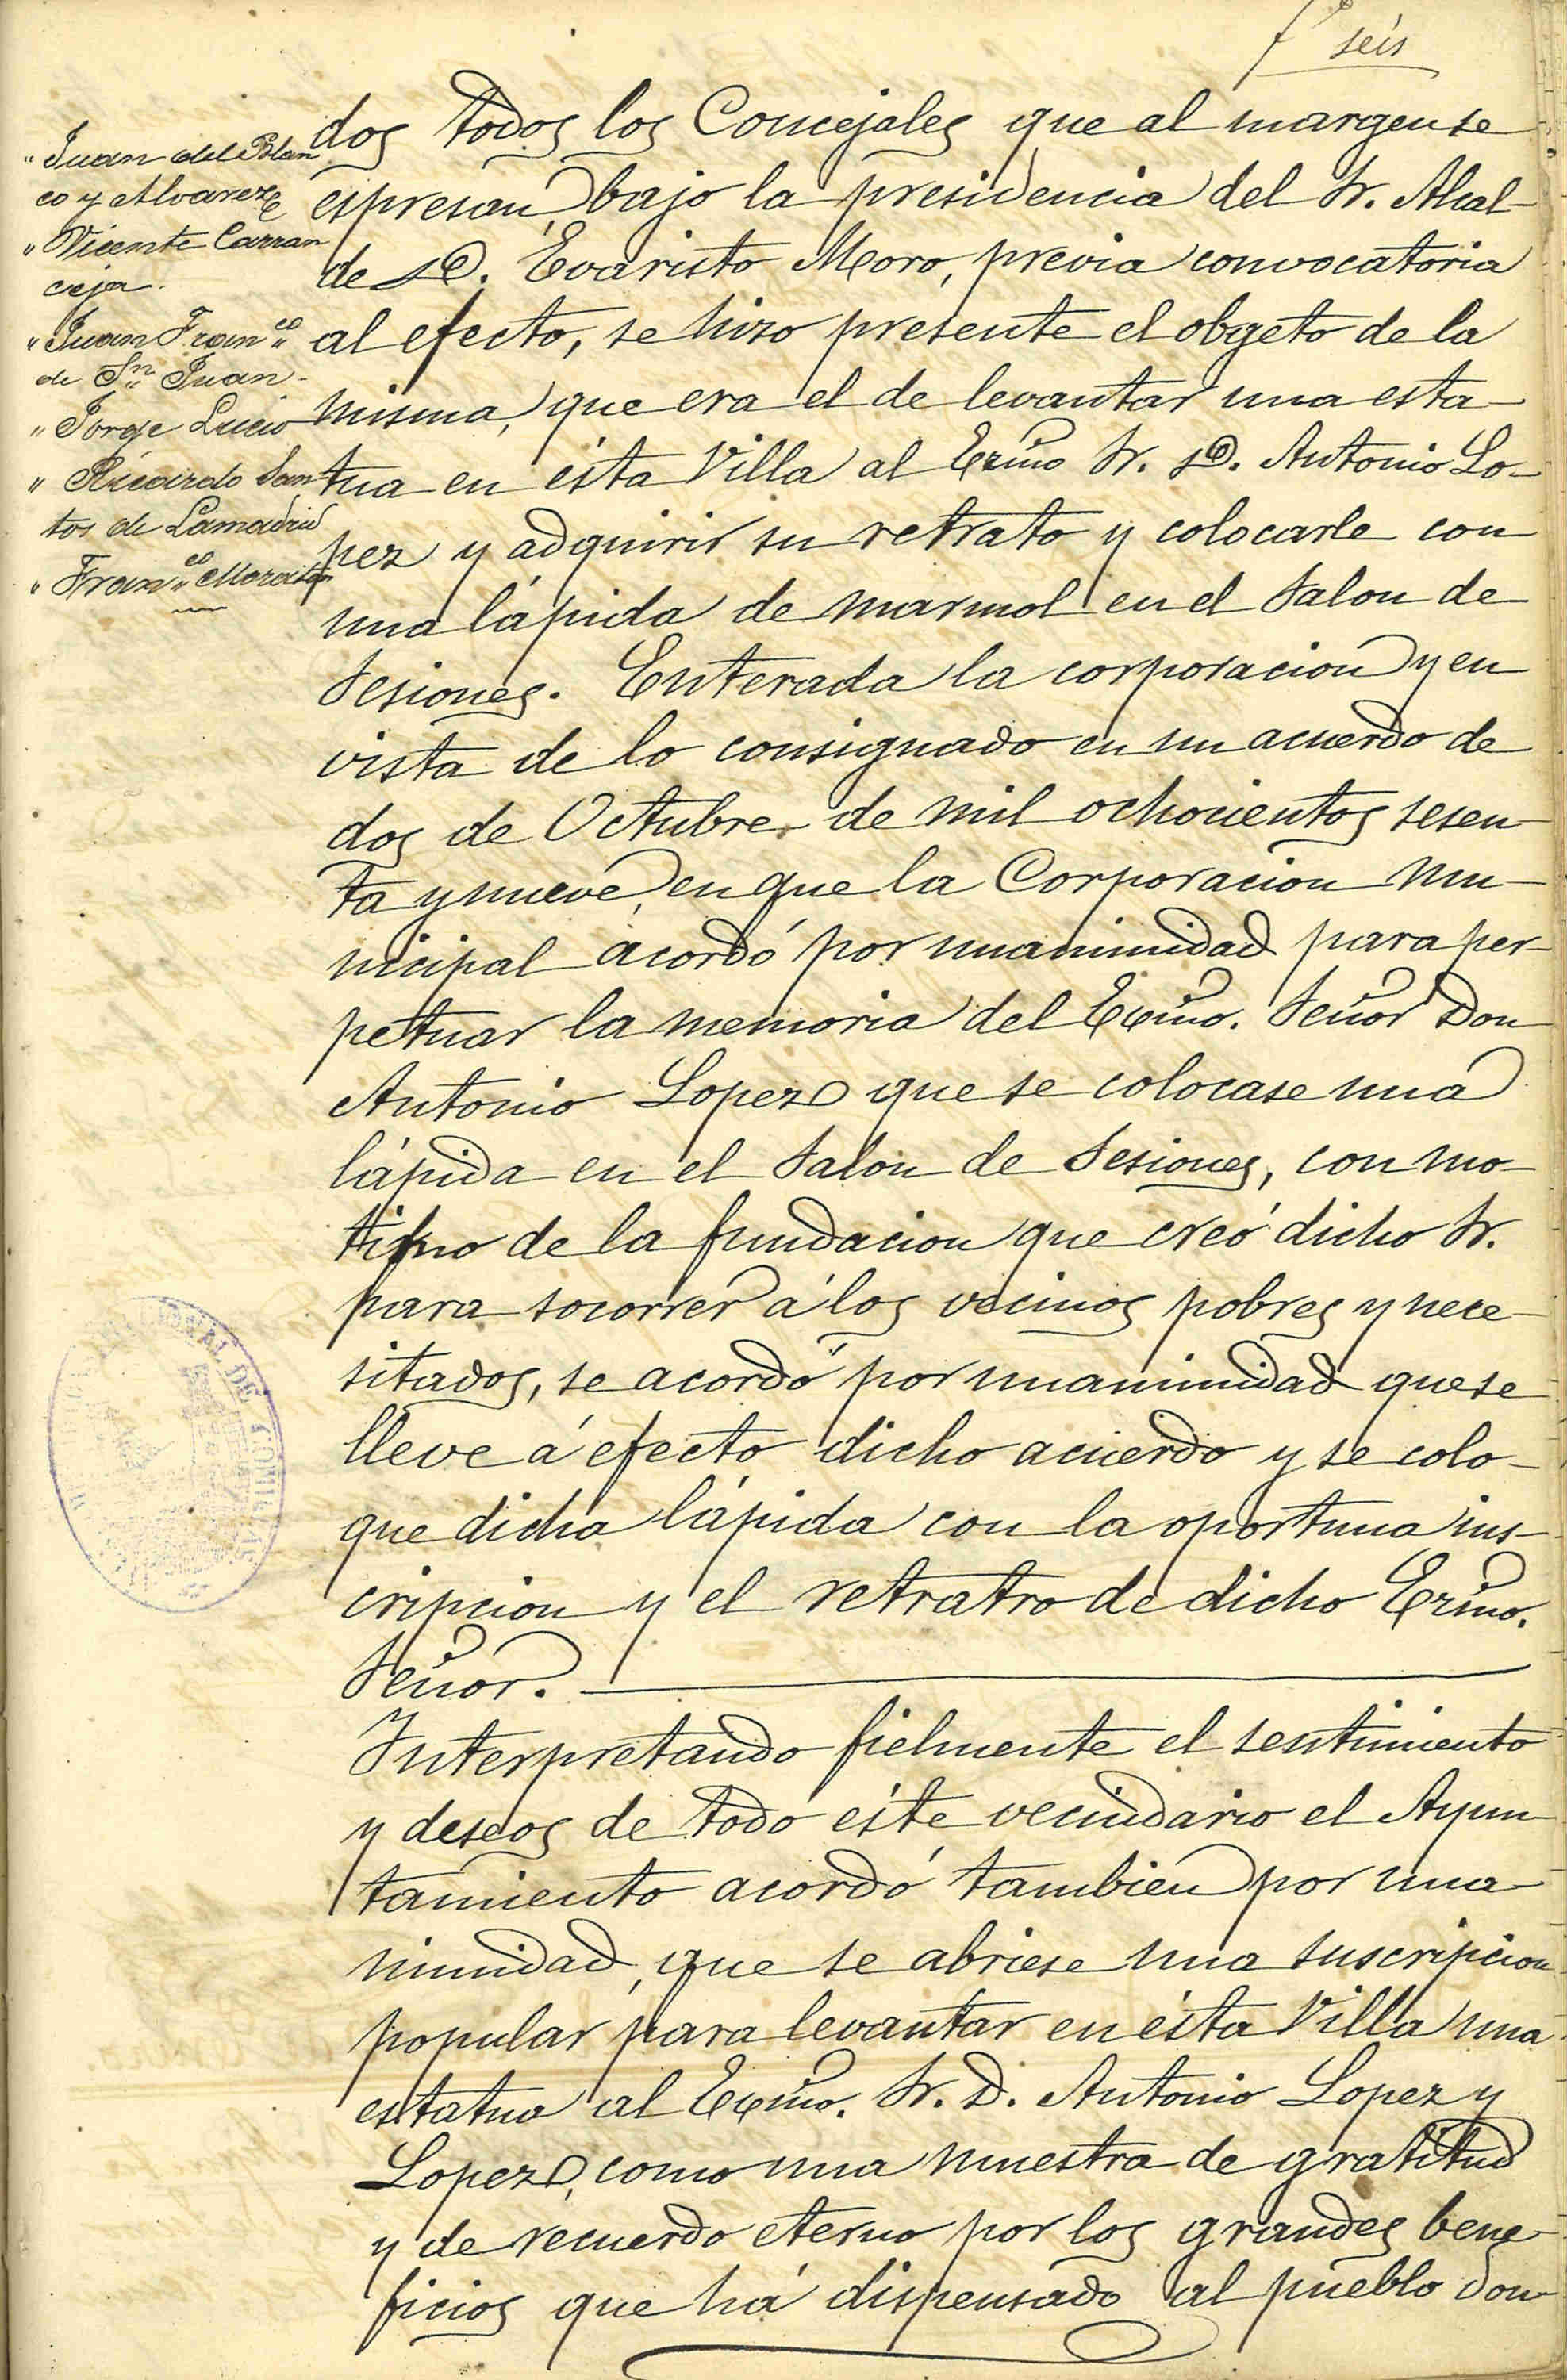 f° seis
" Juan del Blan
co y Alvarez
" Vicente Carran
ceja.
" Juan Fran.co
de Sn Juan.
" Jorge Lucio
" Ricardo San
tos de Lamadrid
" Fran.co
dos todos los Concejales que al margen se
espresan, bajo la presidencia del Sr. Alcal-
de D. Evaristo Moro, previa convocatoria
al efecto, se hizo presente el obgeto de la
misma, que era el de levantar una esta-
tua en ésta Villa al Excmo Sr. D. Antonio Lo-
pez y adquirir su retrato y colocarle con
una lápida de marmol en el Salon de
Sesiones. Enterada la corporacion y en
vista de lo consignado en un acuerdo de
dos de Octubre de mil ochocientos sesen-
ta y nueve, en que la Corporacion Mu-
nicipal acordó por unanimidad para per-
petuar la memoria del Excmo. Señor Don
Antonio Lopez que se colocase una
lápida en el Salon de Sesiones, con mo-
tivo de la fundacion que creó dicho Sr.
para socorrer á los vecinos pobres y nece-
sitados, se acordó por unanimidad que se
lleve á efecto dicho acuerdo y se colo-
que dicha lápida con la oportuna ins-
cripcion y el retratro de dicho Excmo.
Señor.
Interpretando fielmente el sentimiento
y deseos de todo éste vecindario el Ayun
tamiento acordó tambien por una-
nimidad, que se abriese una suscripcion
popular para levantar en ésta Villa una
estatua al Excmo. Sr. D. Antonio Lopez y
Lopez, como una muestra de gratitud
y de recuerdo eterno por los grandes bene-
ficios que há dispensado al pueblo don-
CONSTITUCIONAL DE COMILLAS